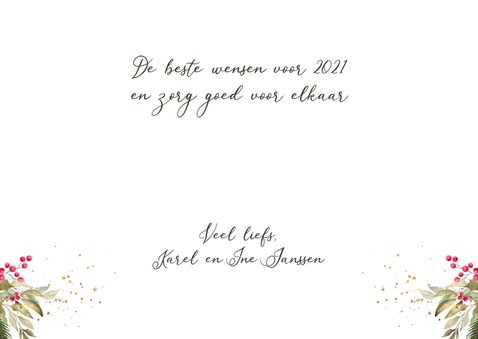 De beste wensen voor 2021
en zorg goed voor elkaar
Veel liefs,
Karel en Ine Janssen